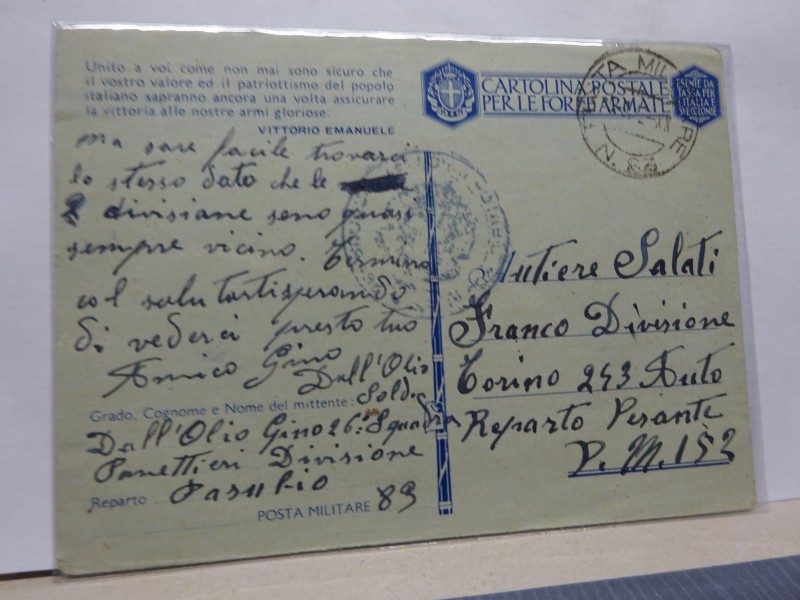 Unito a voi come non mai sono sicuro che
il vostro valore ed il patriottismo del popolo
italiano sapranno ancora una volta assicurare
la vittoria alle nostre armi gloriose.
VITTORIO EMANUELE
CARTOLINA POSTALE
PER LE FORZE ARMATE
ESENTE DA
TASSA PER
L'ITALIA E
SVECCIONE
POSTA MILITARE
N. 83
XX
ma sare facile trovarci
lo stesso dato che le
2 divisiane seno quasi
sempre vicino. Termino
col salutartisperando
di vederci presto tuo
Amico Gino
Dall'Olio
Grado, Cognome e Nome del mittente: Solda
Dall'Olio Gino 26: Squadra
Panettieri Divisione
Reparto Pasubio
POSTA MILITARE 83
Autiere Salati
Franco Divisione
Torino 243 Auto
Reparto Pesante
P.M. 152